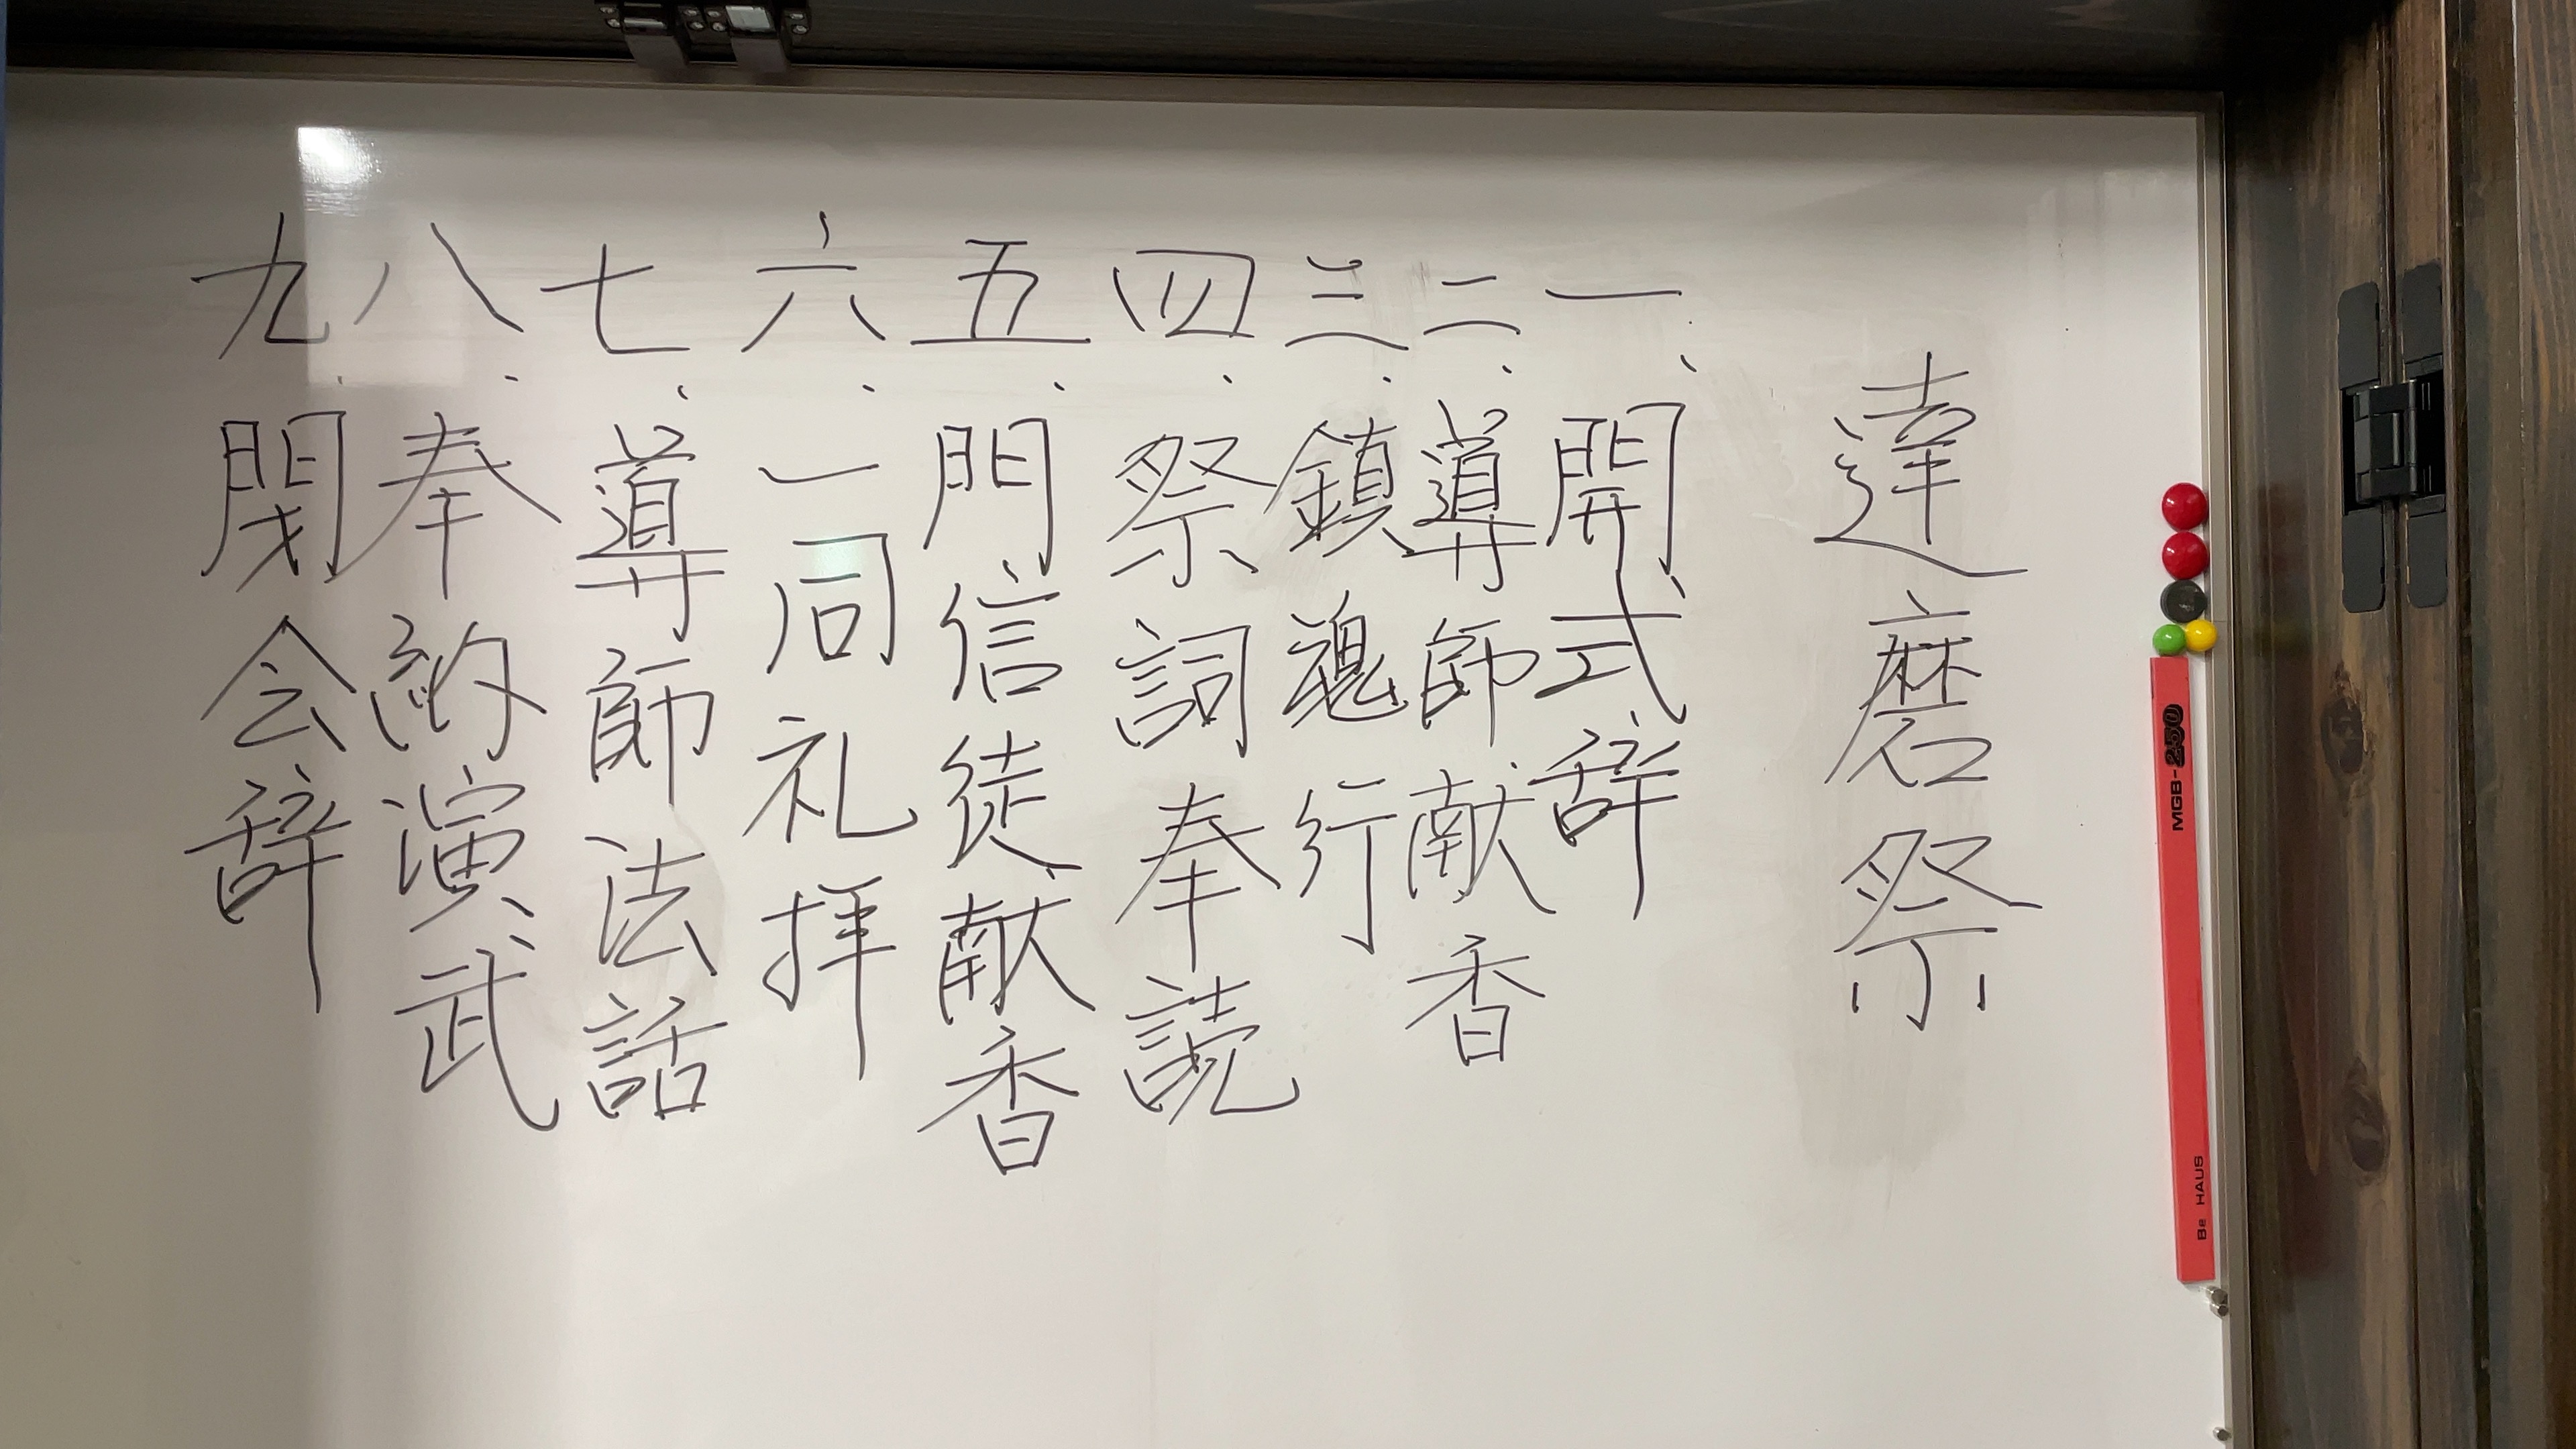 達磨祭
一、開式辞
二、導師献香
三、鎮魂行
四、祭詞奉読
五、門信徒献香
六、一同礼拝
七、導師法話
八、奉納演武
九、閉会辞
MGB-250
Be HAUS